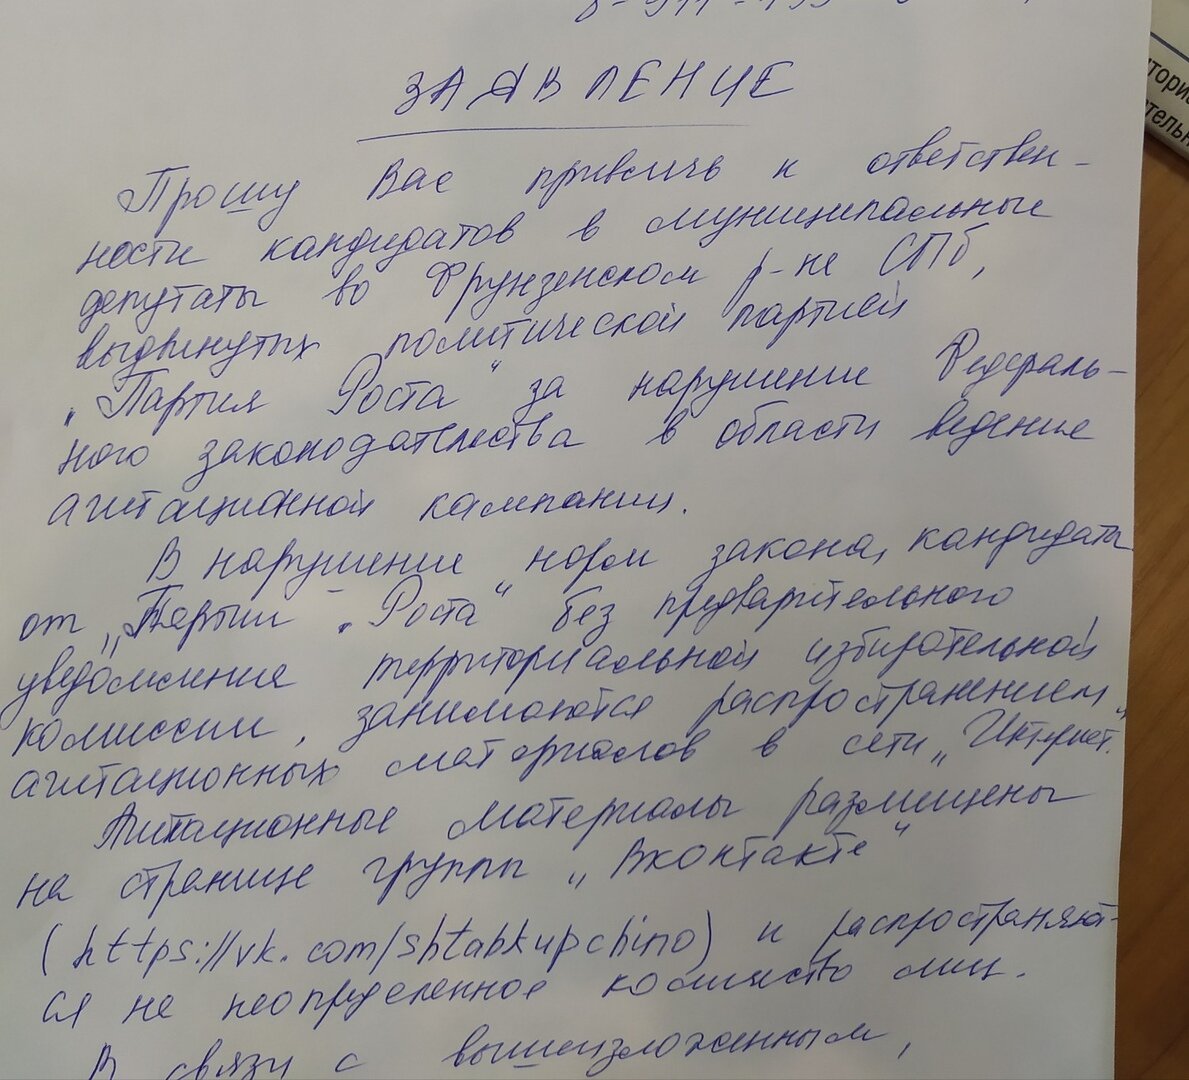 ЗАЯВЛЕНИЕ
Прошу Вас привлечь к ответствен-
ности кандидатов в муниципальные
депутаты во Фрунзенском р-не СПб,
выдвинутых политической партией
„Партия Роста“ за нарушение Федераль-
ного законодательства в области ведение
агитационной кампании.
В нарушение норм закона, кандидаты
от „Партии „Роста“ без предварительного
уведомление территориальной избирательной
комиссии, занимаются распространением
агитационных материалов в сети „Интернет“.
Агитационные материалы размещены
на странице группы „Вконтакте“
(https://vk.com/shtabkupchino) и распространяют-
ся на неопределенное количество лиц.
В связи с вышеизложенным,